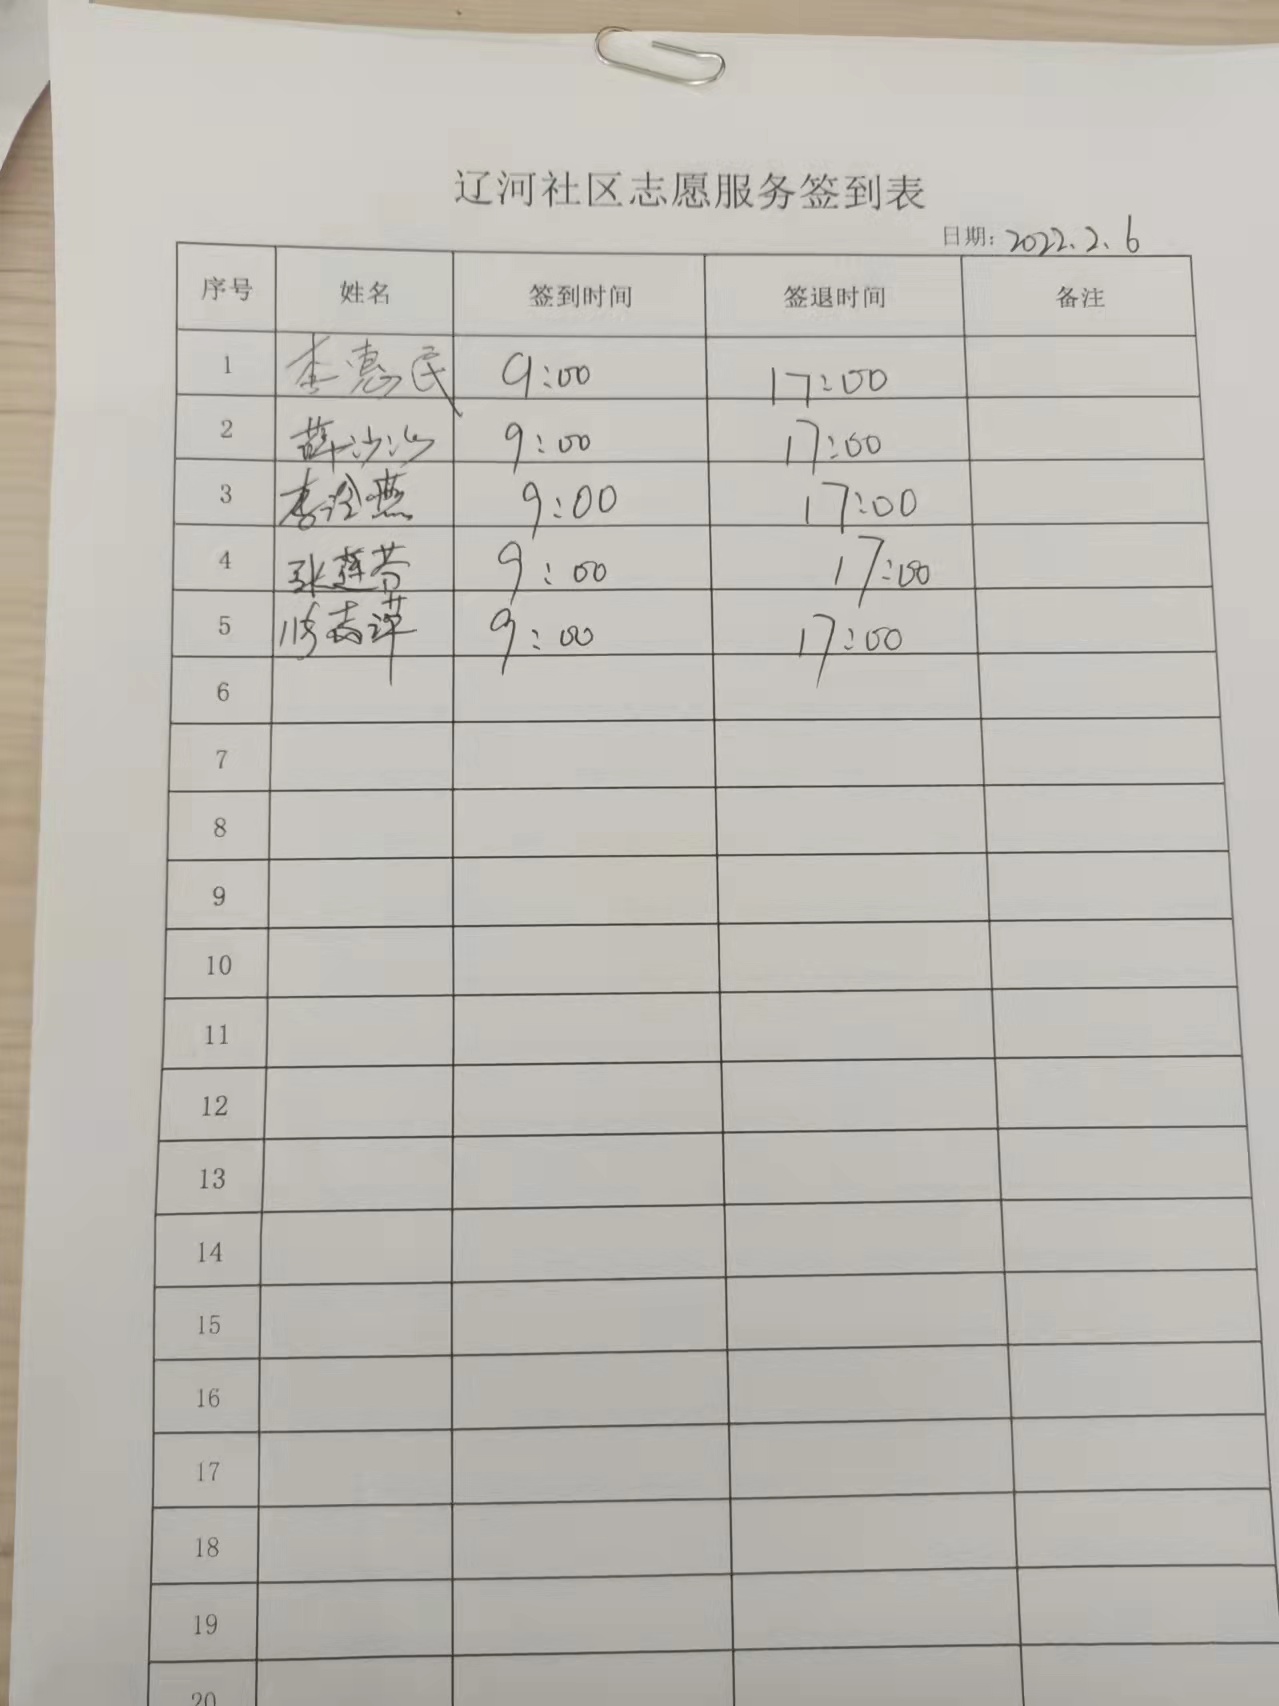 辽河社区志愿服务签到表
日期: 2022.2.6
序号 姓名 签到时间 签退时间 备注
1 李惠民 9:00 17:00
2 薛沙沙 9:00 17:00
3 李 燕 9:00 17:00
4 张莲芬 9:00 17:00
5 9:00 17:00
6
7
8
9
10
11
12
13
14
15
16
17
18
19
20